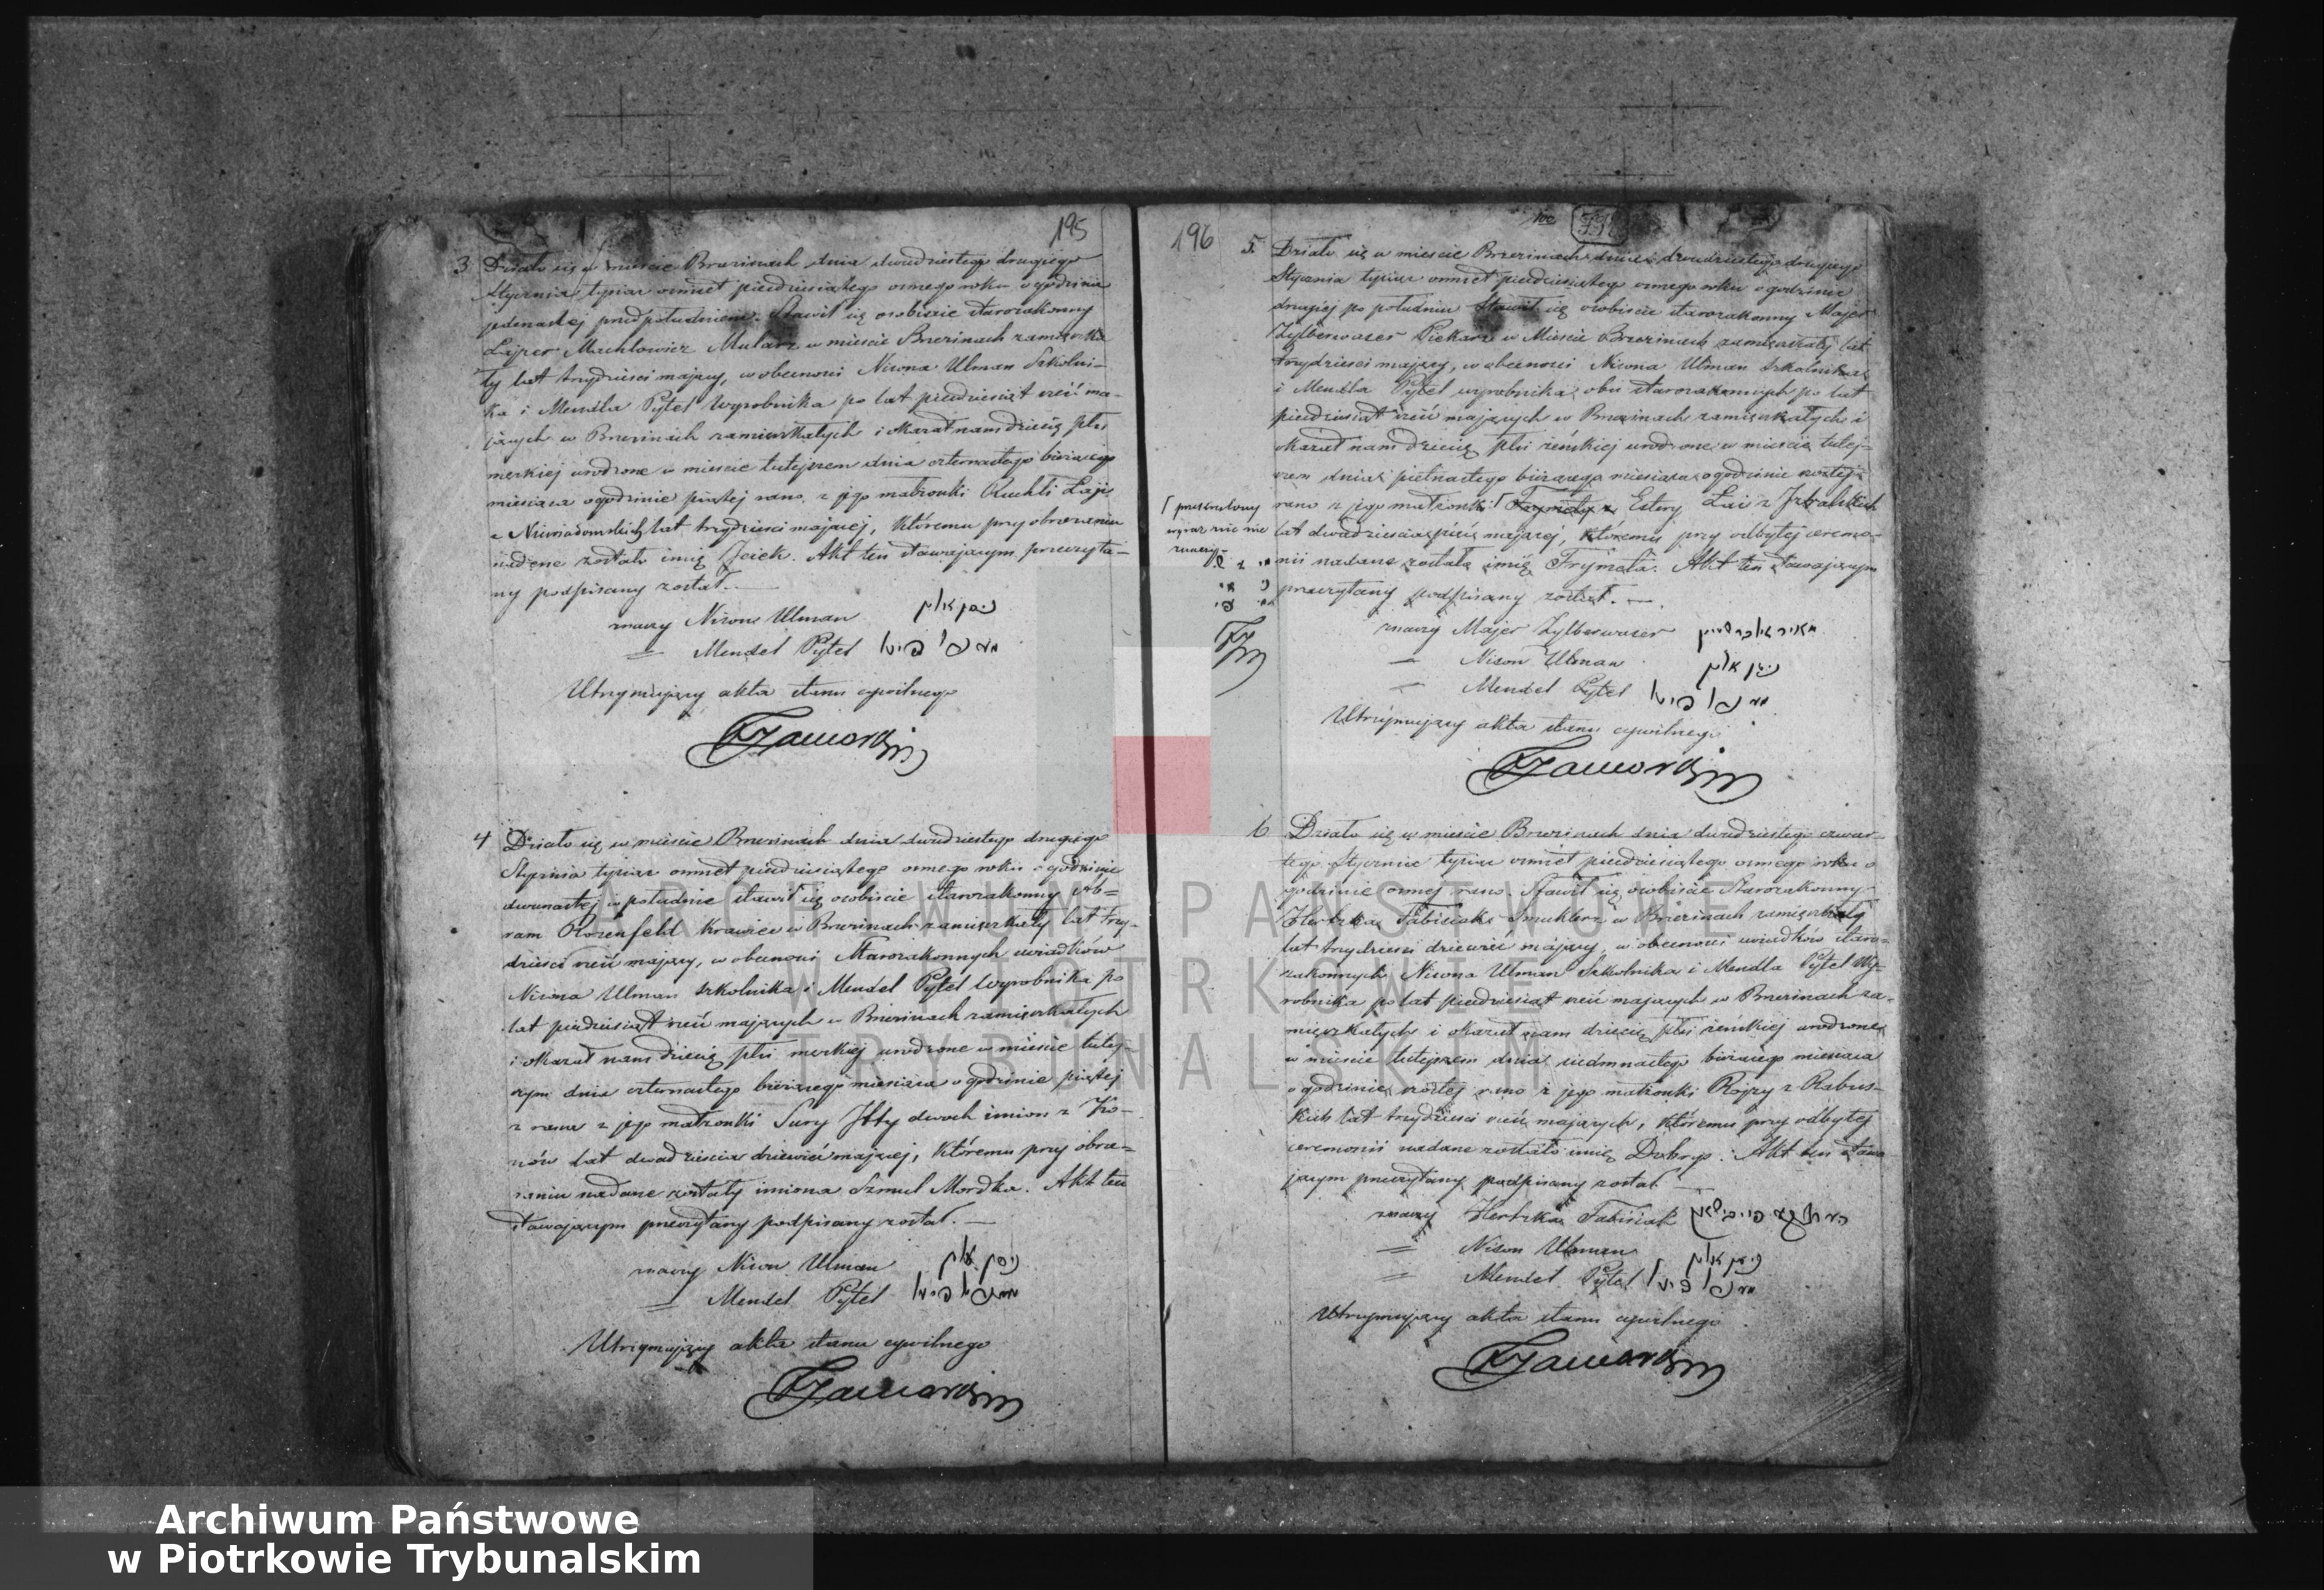 195
3 Działo się w mieście Brzezinach dnia dwudziestego drugiego
Stycznia tysiąc ośmset pięcdziesiątego osmego roku o godzinie
jedenastej przed południem. Stawił się osobiście starozakonny
Lajzer Machlowicz Mularz w mieście Brzezinach zamieszka
ły lat trzydzieści mający, w obecności Nisona Ulman Szkolni-
ka i Mendla Pytel Wyrobnika po lat pięcdziesiąt sześć ma-
jących w Brzezinach zamieszkałych i okazał nam dziecię płci
męzkiej urodzone w mieście tutejszem dnia czternastego bieżącego
miesiąca o godzinie piątej rano, z jego małżonki Ruchli Laji
z Niewiadomskich lat trzydzieści mającej, któremu przy obrzezaniu
nadane zostało imię Icek. Akt ten stawającym przeczyta-
ny podpisany został.
znaczy Nison Ulman ניסן אולמן
= Mendel Pytel מענדל פיטל
Utrzymujący akta stanu cywilnego
4 Działo się w mieście Brzezinach dnia dwudziestego drugiego
Stycznia tysiąc ośmset pięcdziesiątego osmego roku o godzinie
dwunastej w południe stawił się osobiście starozakonny Ab=
ram Rozenfeld Krawiec w Brzezinach zamieszkały lat trzy-
dzieści sześć mający, w obecności Starozakonnych świadków
Nisona Ulman szkolnika i Mendel Pytel Wyrobnika po
lat pięcdziesiąt sześć mających w Brzezinach zamieszkałych
i okazał nam dziecię płci męzkiej urodzone w mieście tutej-
szym dnia czternastego bieżącego miesiąca o godzinie piątej
z rana z jego małżonki Sury Itty dwoch imion z Ko-
nów lat dwadzieścia dziewięć mającej, któremu przy obrze-
zaniu nadane zostały imiona Szmul Mordka. Akt ten
stawającym przeczytany podpisany został.
znaczy Nison Ulman ניסן אולמן
= Mendel Pytel מענדל פיטל
Utrzymujący akta stanu cywilnego
196
5. Działo się w mieście Brzezinach dnia dwudziestego drugiego
Stycznia tysiąc ośmset pięcdziesiątego osmego roku o godzinie
drugiej po południu Stawił się osobiście starozakonny Majer
Zylberwaser Piekarz w Mieście Brzezinach zamieszkały lat
trzydzieści mający, w obecności Nisona Ulman Szkolnika
i Mendla Pytel wyrobnika, obu starozakonnych po lat
pięcdziesiąt sześć mających w Brzezinach zamieszkałych i
okazał nam dziecię płci żeńskiej urodzone w mieście tutej-
szem dnia piętnastego bieżącego miesiąca o godzinie szóstej
rano z jego małżonki Frymety z Estery Łai z
lat dwadzieścia pięć mającej, któremu przy odbytej ceremo-
nii nadane zostało imię Frymeta. Akt ten stawającym
przeczytany podpisany został.
przekreślony
wyraz nic nie
znaczy
znaczy Majer Zylberwaser
— Nison Ulman ניסן אולמן
— Mendel Pytel מענדל פיטל
Utrzymujący akta stanu cywilnego
6 Działo się w mieście Brzezinach dnia dwudziestego czwar-
tego Stycznia tysiąc ośmset pięcdziesiątego osmego roku o
godzinie osmej rano. Stawił się osobiście Starozakonny
Herszka Tabisiak Szmuklerz w Brzezinach zamieszkały
lat trzydzieści dziewięć mający, w obecności świadków staro-
zakonnych Nisona Ulman Szkolnika i Mendla Pytel Wy-
robnika po lat pięcdziesiąt sześć mających w Brzezinach za-
mieszkałych i okazał nam dziecię płci żeńskiej urodzone
w mieście tutejszem dnia siedmnastego bieżącego miesiąca
o godzinie szóstej rano z jego małżonki Rojzy z Rabus-
kich lat trzydzieści sześć mających, któremu przy odbytej
ceremonii nadane zostało imię Dobrys. Akt ten stawa
jącym przeczytany podpisany został.
znaczy Herszka Tabisiak
= Nison Ulman ניסן אולמן
= Mendel Pytel מענדל פיטל
Utrzymujący akta stanu cywilnego
ARCHIWUM PAŃSTWOWE
W PIOTRKOWIE
TRYBUNALSKIM
Archiwum Państwowe
w Piotrkowie Trybunalskim